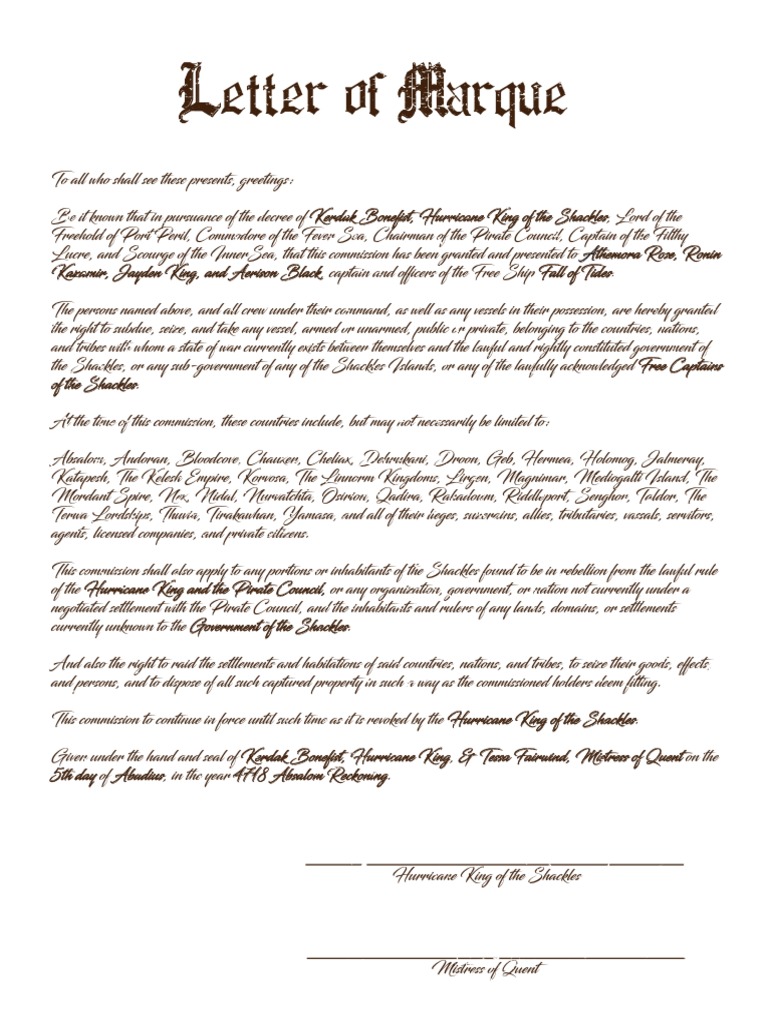 Letter of Marque
To all who shall see these presents, greetings:
Be it known that in pursuance of the decree of Kerdak Bonefist, Hurricane King of the Shackles, Lord of the
Freehold of Port Peril, Commodore of the Fever Sea, Chairman of the Pirate Council, Captain of the Filthy
Lucre, and Scourge of the Inner Sea, that this commission has been granted and presented to Athemora Rose, Ronin
Kaxamir, Jayden King, and Aerison Black, captain and officers of the Free Ship Fall of Tides.
The persons named above, and all crew under their command, as well as any vessels in their possession, are hereby granted
the right to subdue, seize, and take any vessel, armed or unarmed, public or private, belonging to the countries, nations,
and tribes with whom a state of war currently exists between themselves and the lawful and rightly constituted government of
the Shackles, or any sub-government of any of the Shackles Islands, or any of the lawfully acknowledged Free Captains
of the Shackles.
At the time of this commission, these countries include, but may not necessarily be limited to:
Absalom, Andoran, Bloodcove, Chauxen, Cheliax, Dehrukani, Droon, Geb, Hermea, Holomog, Jalmeray,
Katapesh, The Kelesh Empire, Korvosa, The Linnorm Kingdoms, Lirgen, Magnimar, Mediogalti Island, The
Mordant Spire, Nex, Nidal, Nurvatchta, Osirion, Qadira, Rahadoum, Riddleport, Senghor, Taldor, The
Terwa Lordships, Thuvia, Tirakawhan, Yamasa, and all of their lieges, suzerains, allies, tributaries, vassals, servitors,
agents, licensed companies, and private citizens.
This commission shall also apply to any portions or inhabitants of the Shackles found to be in rebellion from the lawful rule
of the Hurricane King and the Pirate Council, or any organization, government, or nation not currently under a
negotiated settlement with the Pirate Council, and the inhabitants and rulers of any lands, domains, or settlements
currently unknown to the Government of the Shackles.
And also the right to raid the settlements and habitations of said countries, nations, and tribes, to seize their goods, effects,
and persons, and to dispose of all such captured property in such a way as the commissioned holders deem fitting.
This commission to continue in force until such time as it is revoked by the Hurricane King of the Shackles.
Given under the hand and seal of Kerdak Bonefist, Hurricane King, & Tessa Fairwind, Mistress of Quent on the
5th day of Abadius, in the year 4718 Absalom Reckoning.
Hurricane King of the Shackles
Mistress of Quent